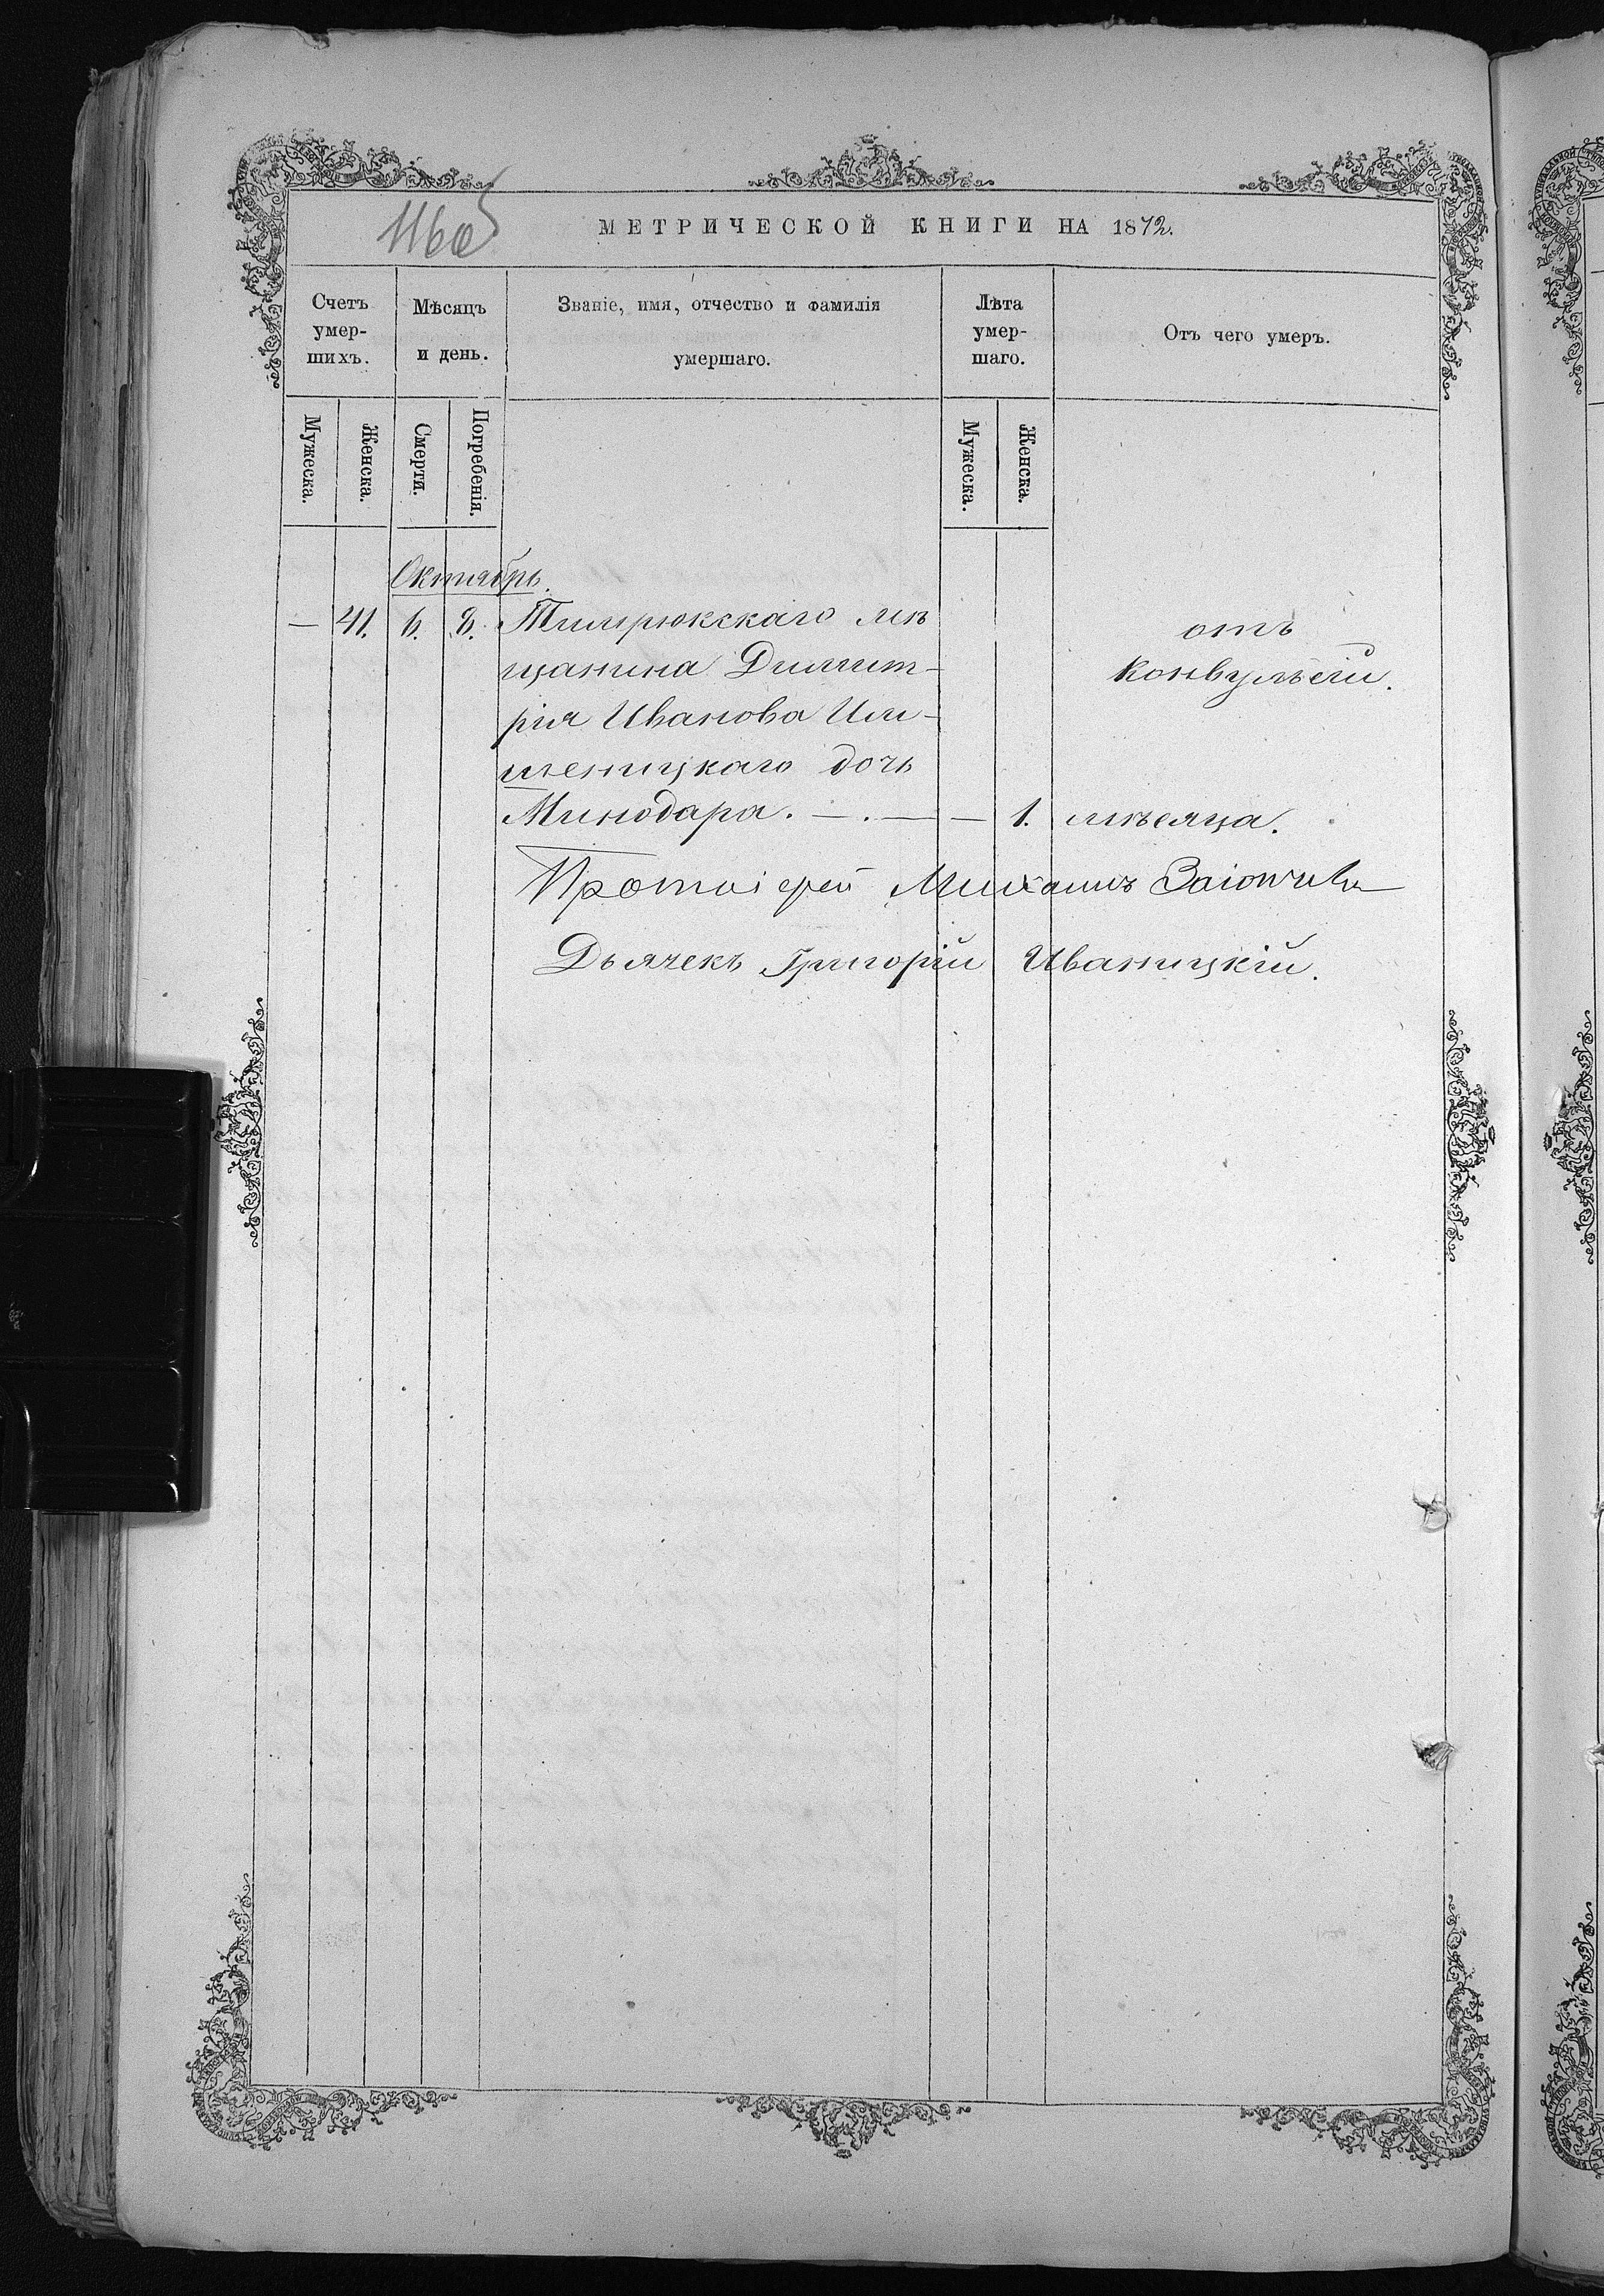 116об
МЕТРИЧЕСКОЙ КНИГИ НА 1872.
Счетъ умер-шихъ.
Мѣсяцъ и день.
Званіе, имя, отчество и фамилія умершаго.
Лѣта умер-шаго.
Отъ чего умеръ.
Мужеска.
Женска.
Смерти.
Погребенія.
Мужеска.
Женска.
Октябрь.
— 41. 6. 8. Темрюкскаго мѣ отъ
щанина Димит- конвульсіи.
рія Иванова
дочь
Минодара. — . — — 1. мѣсяца.
Протоіерей Михаилъ
Дьячекъ Григорій Иваницкій.